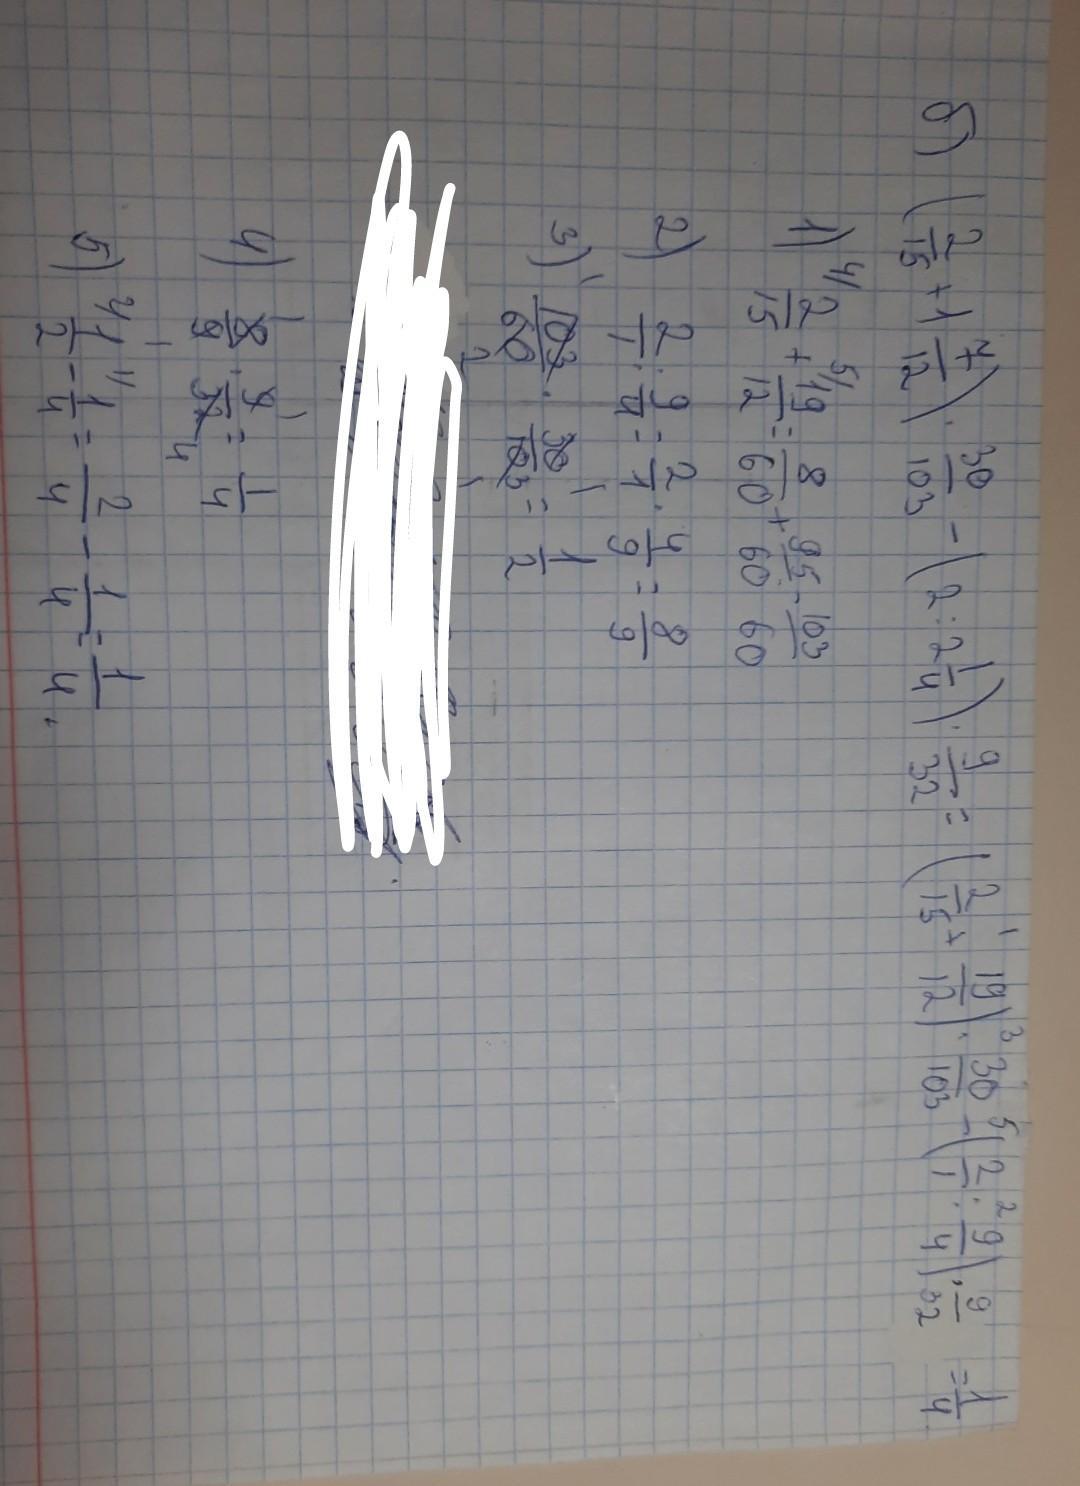 б) (2/15 + 1 7/12) · 30/103 - (2 : 2 1/4) · 9/32 = (2/15 + 19/12) · 30/103 - (2/1 : 9/4) · 9/32 = 1/4
1) 2/15 + 19/12 = 8/60 + 95/60 = 103/60
2) 2/1 : 9/4 = 2/1 · 4/9 = 8/9
3) 103/60 · 30/103 = 1/2
4) 8/9 · 9/32 = 1/4
5) 1/2 - 1/4 = 2/4 - 1/4 = 1/4.